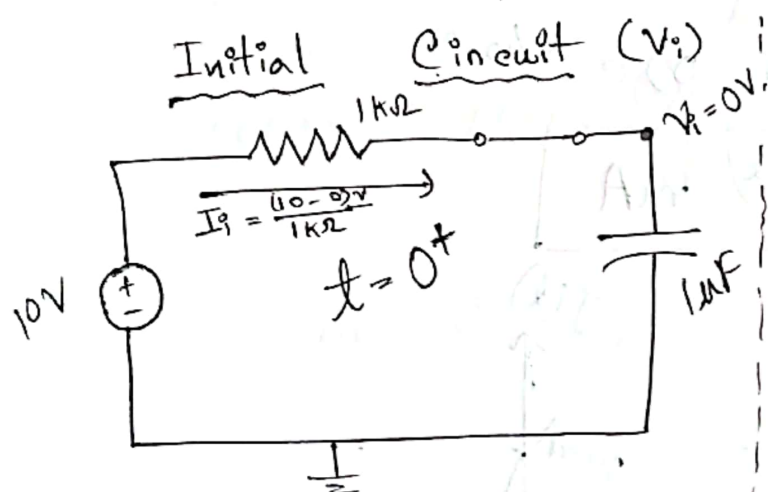 Initial Circuit (Vi)
1kΩ
Vi = 0V.
Ii = (10-0)V / 1kΩ
t = 0⁺
10V
+
-
1uF